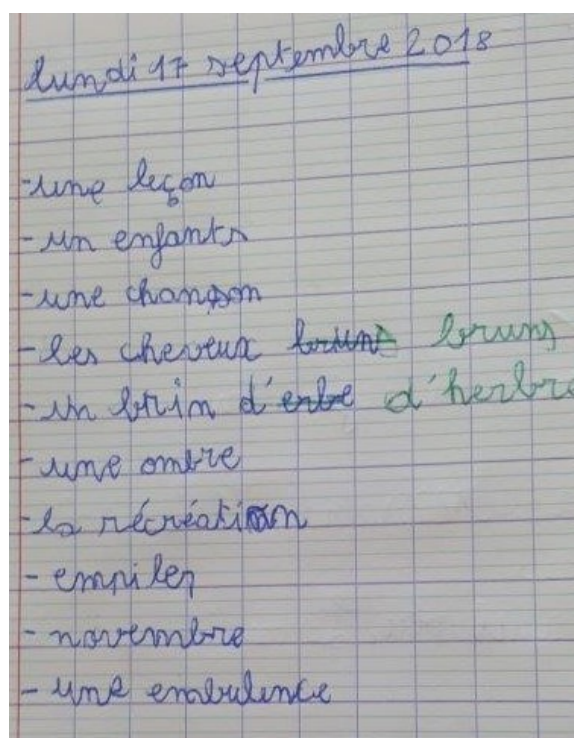 lundi 17 septembre 2018
- une leçon
- un enfants
- une chanson
- les cheveux bruns bruns
- un brin d'erbe d'herbre
- une ombre
- la récréation
- empiler
- novembre
- une embulence